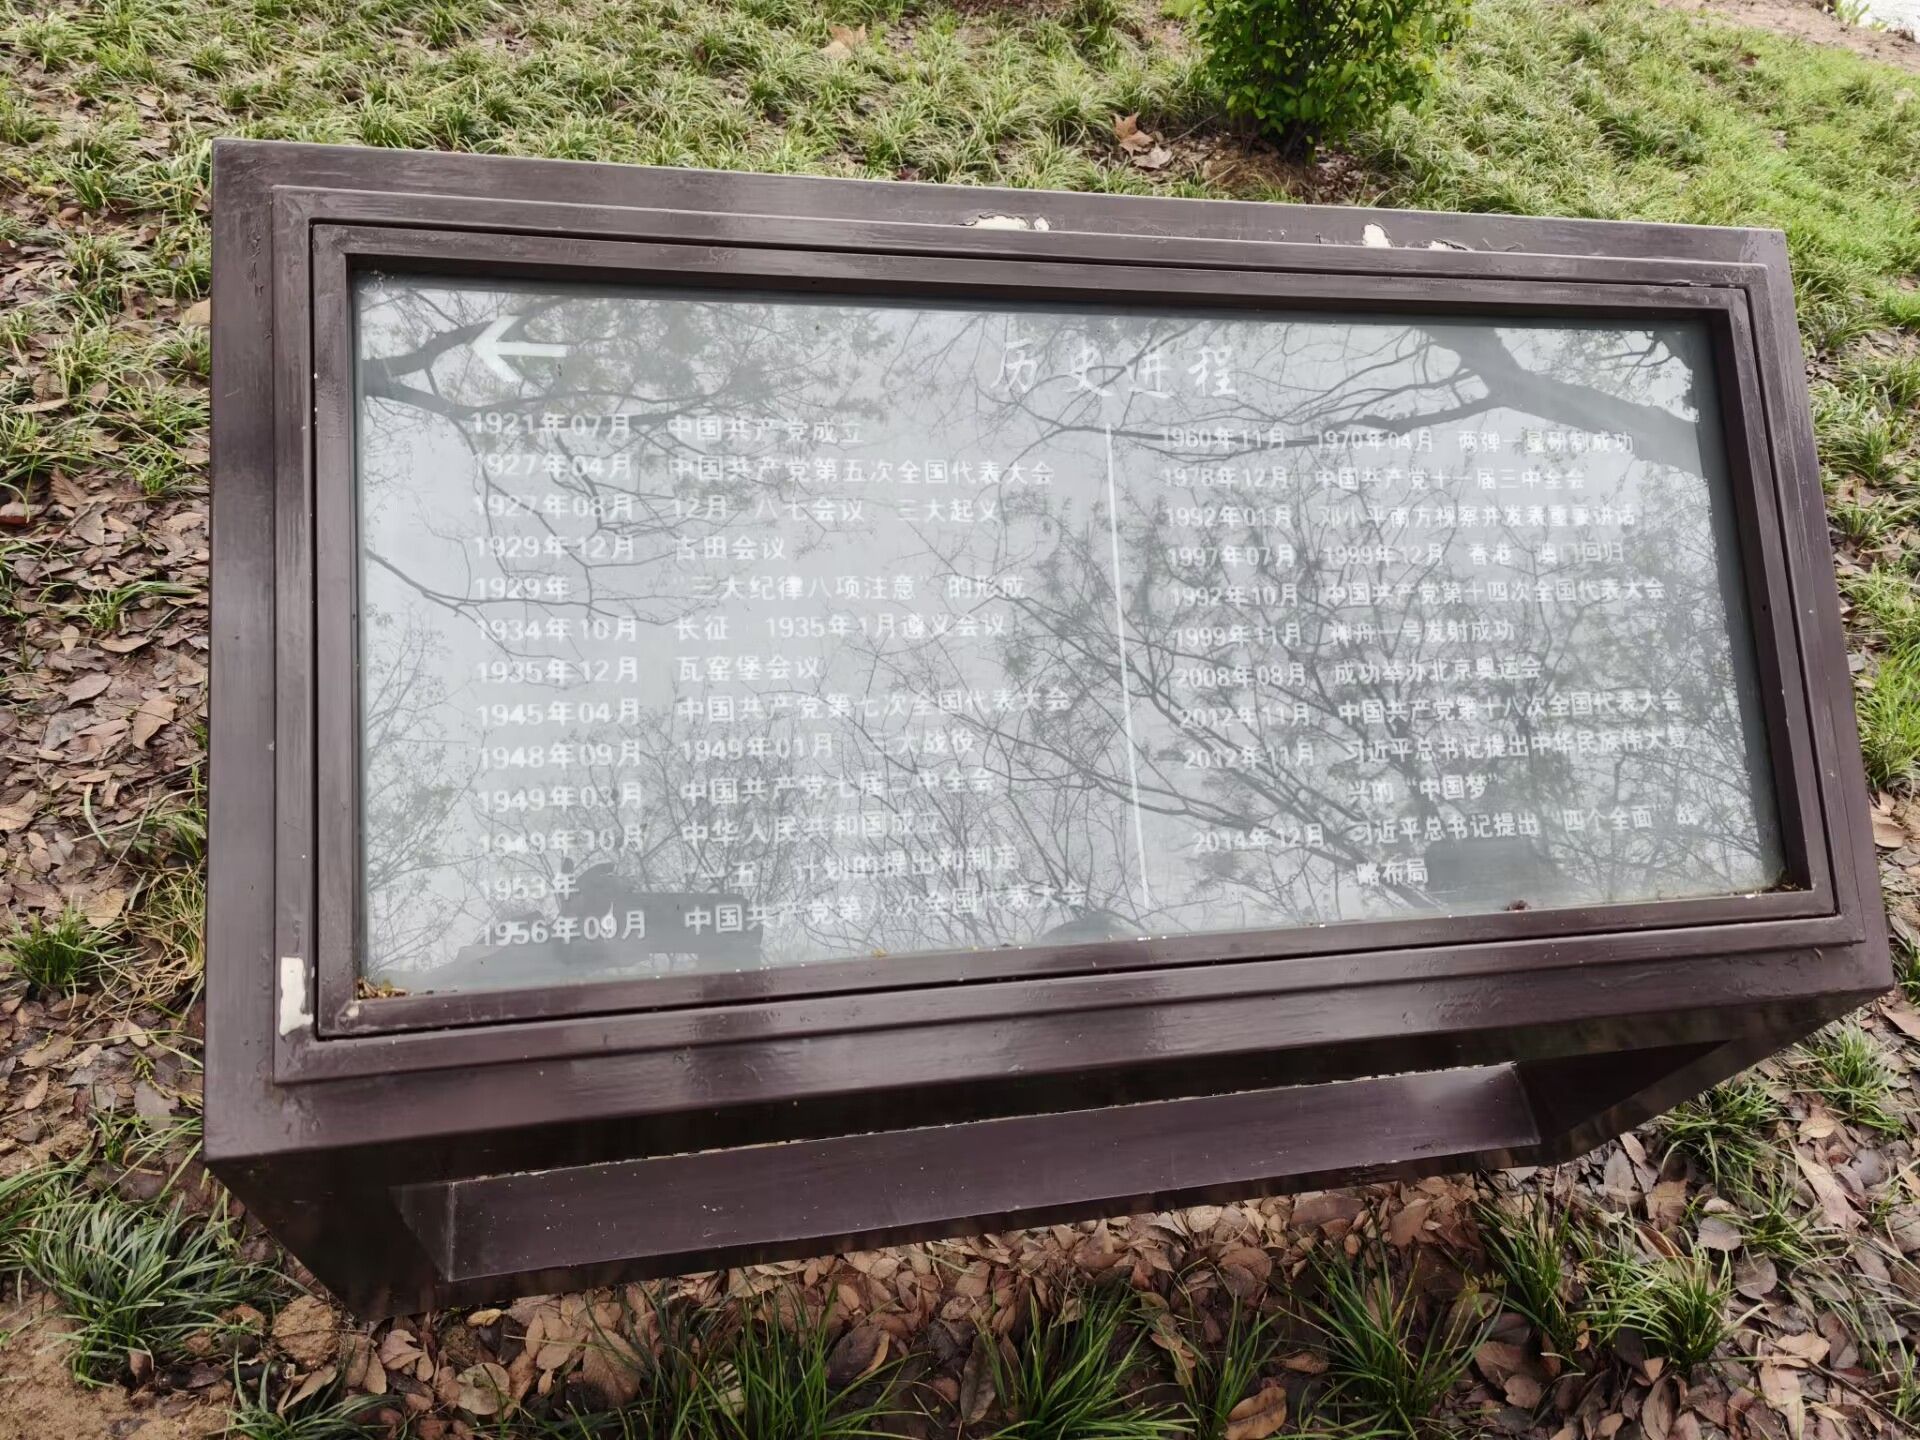 历史进程
1921年07月 中国共产党成立
1927年04月 中国共产党第五次全国代表大会
1927年08月 12月 八七会议 三大起义
1929年12月 古田会议
1929年 “三大纪律八项注意”的形成
1934年10月 长征 1935年1月遵义会议
1935年12月 瓦窑堡会议
1945年04月 中国共产党第七次全国代表大会
1948年09月 1949年01月 三大战役
1949年03月 中国共产党七届二中全会
1949年10月 中华人民共和国成立
1953年 “一五”计划的提出和制定
1956年09月 中国共产党第八次全国代表大会
1960年11月 1970年04月 两弹一星研制成功
1978年12月 中国共产党十一届三中全会
1992年01月 邓小平南方视察并发表重要讲话
1997年07月 1999年12月 香港 澳门回归
1992年10月 中国共产党第十四次全国代表大会
1999年11月 神舟一号发射成功
2008年08月 成功举办北京奥运会
2012年11月 中国共产党第十八次全国代表大会
2012年11月 习近平总书记提出中华民族伟大复
兴的“中国梦”
2014年12月 习近平总书记提出“四个全面”战
略布局